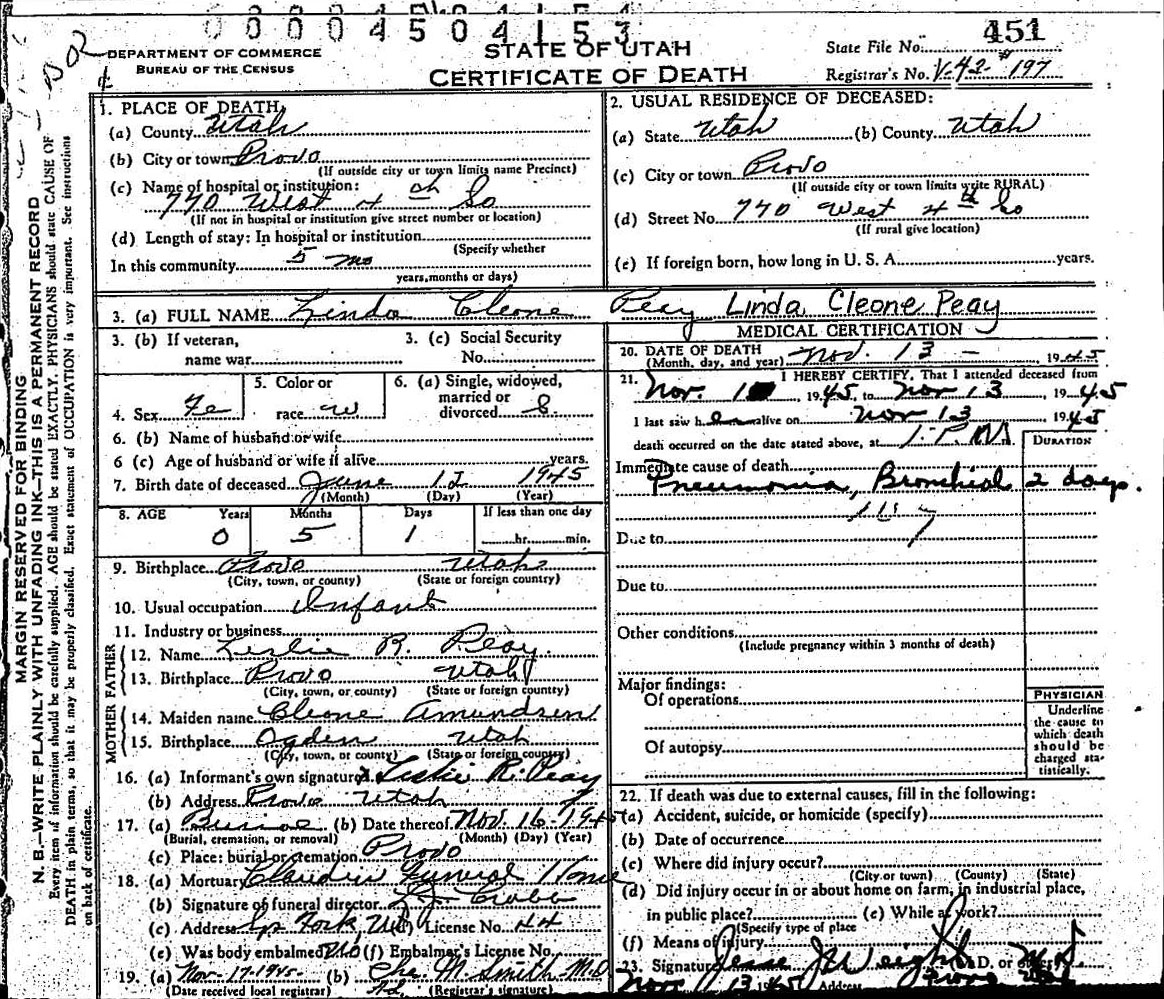 0 0 0 0 4 5 0 4 1 5 3
451
DEPARTMENT OF COMMERCE
BUREAU OF THE CENSUS
STATE OF UTAH
CERTIFICATE OF DEATH
State File No.
Registrar's No. V-42-#197
MARGIN RESERVED FOR BINDING
N. B.—WRITE PLAINLY WITH UNFADING INK—THIS IS A PERMANENT RECORD
Every item of information should be carefully supplied. AGE should be stated EXACTLY. PHYSICIANS should state CAUSE OF
DEATH in plain terms, so that it may be properly classified. Exact statement of OCCUPATION is very important. See instructions
on back of certificate.
1. PLACE OF DEATH
(a) County Utah
(b) City or town Provo
(If outside city or town limits name Precinct)
(c) Name of hospital or institution:
770 West 4th So
(If not in hospital or institution give street number or location)
(d) Length of stay: In hospital or institution
(Specify whether
In this community 5 mo
years, months or days)
2. USUAL RESIDENCE OF DECEASED:
(a) State Utah (b) County Utah
(c) City or town Provo
(If outside city or town limits write RURAL)
(d) Street No. 770 West 4th So
(If rural give location)
(e) If foreign born, how long in U. S. A. years.
3. (a) FULL NAME Linda Cleone Peay Linda Cleone Peay
3. (b) If veteran,
name war
3. (c) Social Security
No.
4. Sex Fe
5. Color or
race w
6. (a) Single, widowed,
married or
divorced S.
6. (b) Name of husband or wife
6 (c) Age of husband or wife if alive years.
7. Birth date of deceased June 12 1945
(Month) (Day) (Year)
8. AGE Years Months Days If less than one day
0 5 1 hr. min.
9. Birthplace Provo Utah
(City, town, or county) (State or foreign country)
10. Usual occupation Infant
11. Industry or business
FATHER
12. Name Leslie R. Peay.
13. Birthplace Provo Utah
(City, town, or county) (State or foreign country)
MOTHER
14. Maiden name Cleone Amundsen
15. Birthplace Ogden Utah
(City, town, or county) (State or foreign country)
16. (a) Informant's own signature Leslie R. Peay
(b) Address Provo Utah
17. (a) Burial (b) Date thereof Nov. 16-1945
(Burial, cremation, or removal) (Month) (Day) (Year)
(c) Place: burial or cremation Provo
18. (a) Mortuary Claudin Funeral Home
(b) Signature of funeral director
(c) Address Sp Fork, Ut License No. 44
(e) Was body embalmed No (f) Embalmer's License No.
19. (a) Nov-17-1945- (b) Chs. M Smith M.D
(Date received local registrar) (Registrar's signature)
MEDICAL CERTIFICATION
20. DATE OF DEATH
(Month, day, and year) Nov. 13 - 1945
21. I HEREBY CERTIFY, That I attended deceased from
Nov. 1945, to Nov 13 1945
I last saw her alive on Nov 13 1945
death occurred on the date stated above, at 1. P. M.
DURATION
Immediate cause of death
Pneumonia, Bronchial 2 days.
107
Due to
Due to
Other conditions
(Include pregnancy within 3 months of death)
Major findings:
Of operations
Of autopsy
PHYSICIAN
Underline
the cause to
which death
should be
charged sta-
tistically.
22. If death was due to external causes, fill in the following:
(a) Accident, suicide, or homicide (specify)
(b) Date of occurrence
(c) Where did injury occur?
(City or town) (County) (State)
(d) Did injury occur in or about home on farm, in industrial place,
in public place? (e) While at work?
(Specify type of place
(f) Means of injury
23. Signature Jesse J Weight M.D. or other M D
Nov 13 1945 Address Provo Utah